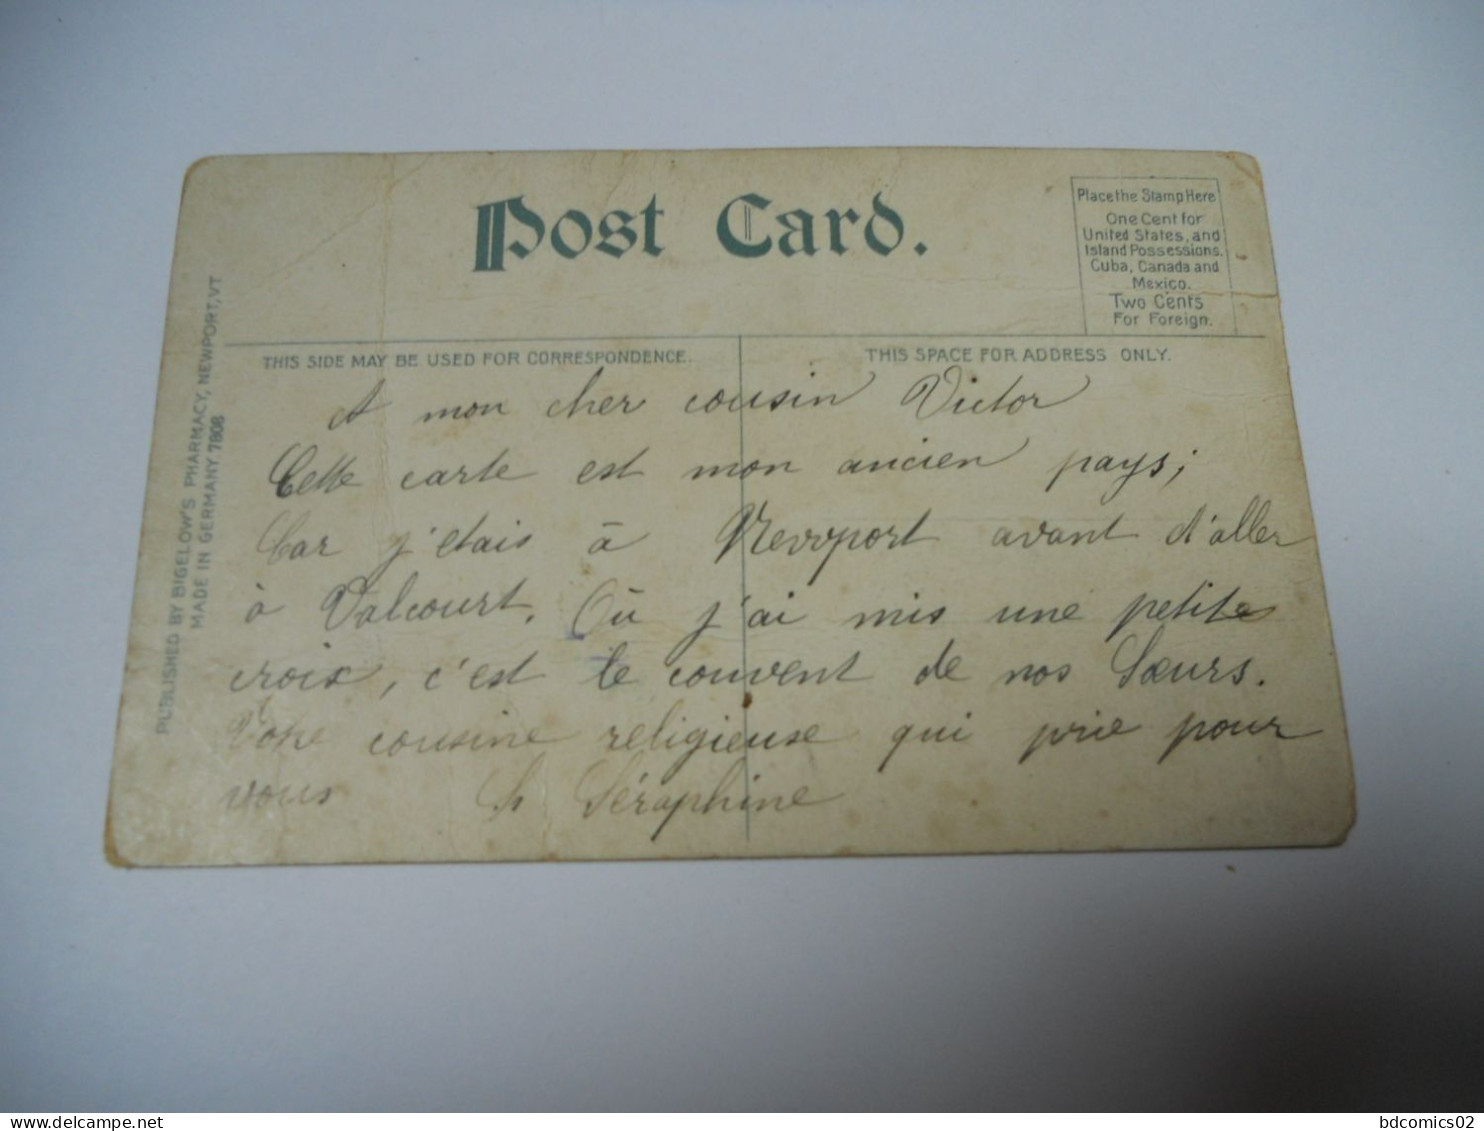 Post Card.
Place the Stamp Here
One Cent for
United States, and
Island Possessions,
Cuba, Canada and
Mexico.
Two Cents
For Foreign.
THIS SIDE MAY BE USED FOR CORRESPONDENCE.
THIS SPACE FOR ADDRESS ONLY.
PUBLISHED BY BIGELOW'S PHARMACY, NEWPORT, VT
MADE IN GERMANY 7808
A mon cher cousin Victor
Cette carte est mon ancien pays;
Car j'etais à Newport avant d'aller
à Valcourt. Où j'ai mis une petite
croix, c'est le couvent de nos Sœurs.
Votre cousine religieuse qui prie pour
vous Sr Séraphine
bdcomics02